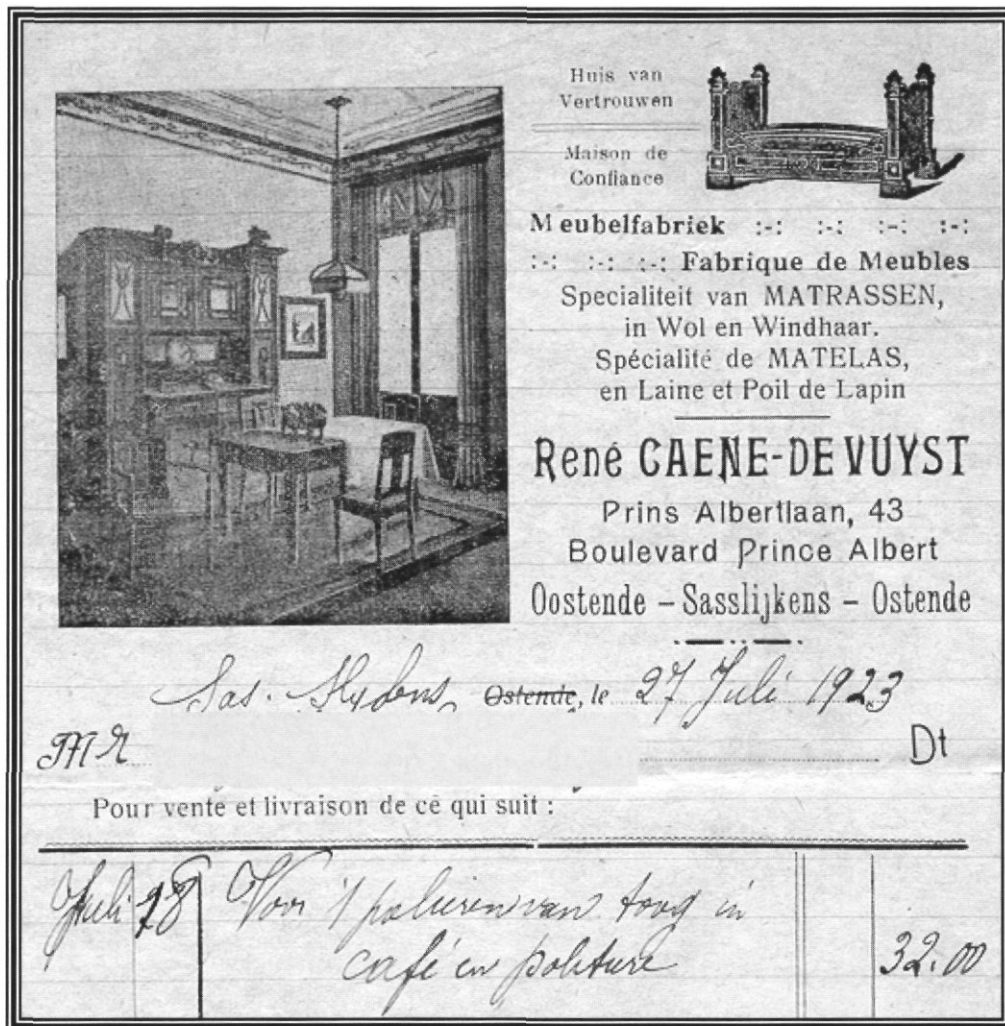 Huis van
Vertrouwen
Maison de
Confiance
Meubelfabriek :-: :-: :-: :-:
:-: :-: :-: Fabrique de Meubles
Specialiteit van MATRASSEN,
in Wol en Windhaar.
Spécialité de MATELAS,
en Laine et Poil de Lapin
René CAENE-DE VUYST
Prins Albertlaan, 43
Boulevard Prince Albert
Oostende - Sasslijkens - Ostende
Sas. Slykens, Ostende, le 27 Juli 1923
Mr Dt
Pour vente et livraison de cé qui suit :
Juli 28 Voor 't polieren van toog in
café en politure 32.00